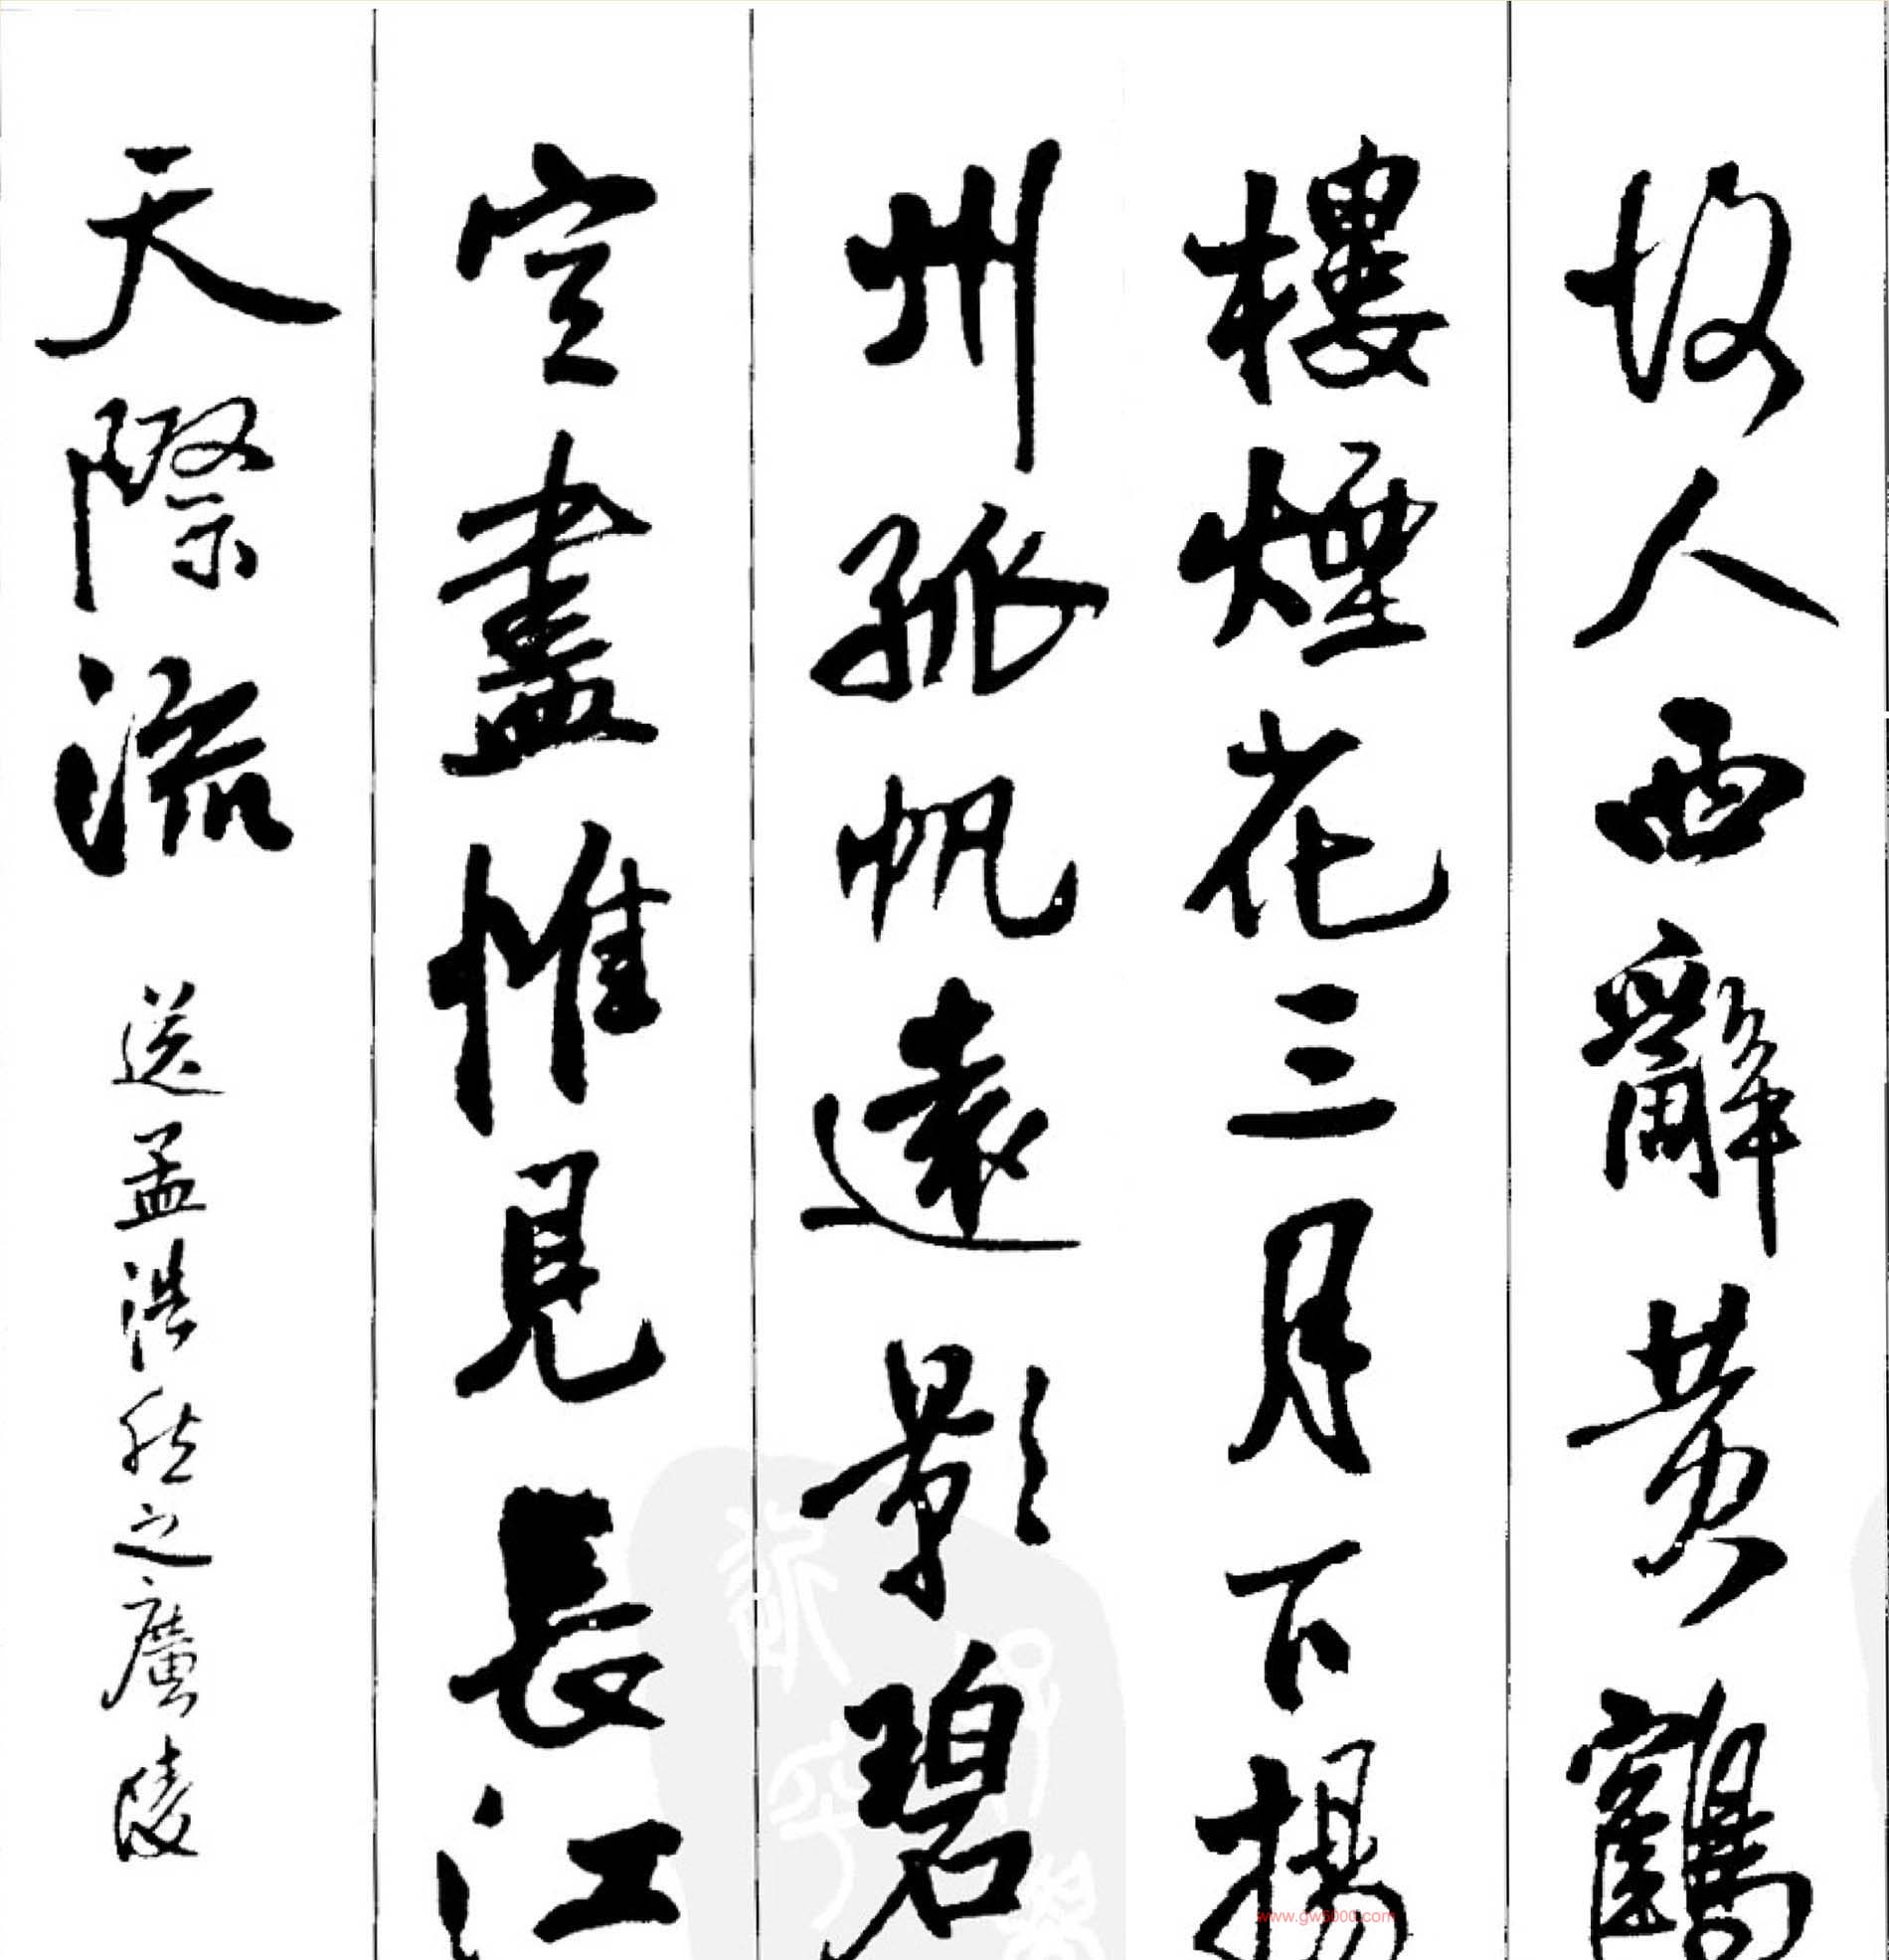 故人西辭黃鶴
樓煙花三月下揚
州孤帆遠影碧
空盡惟見長江
天際流 送孟浩然之廣陵
www.gw5000.com